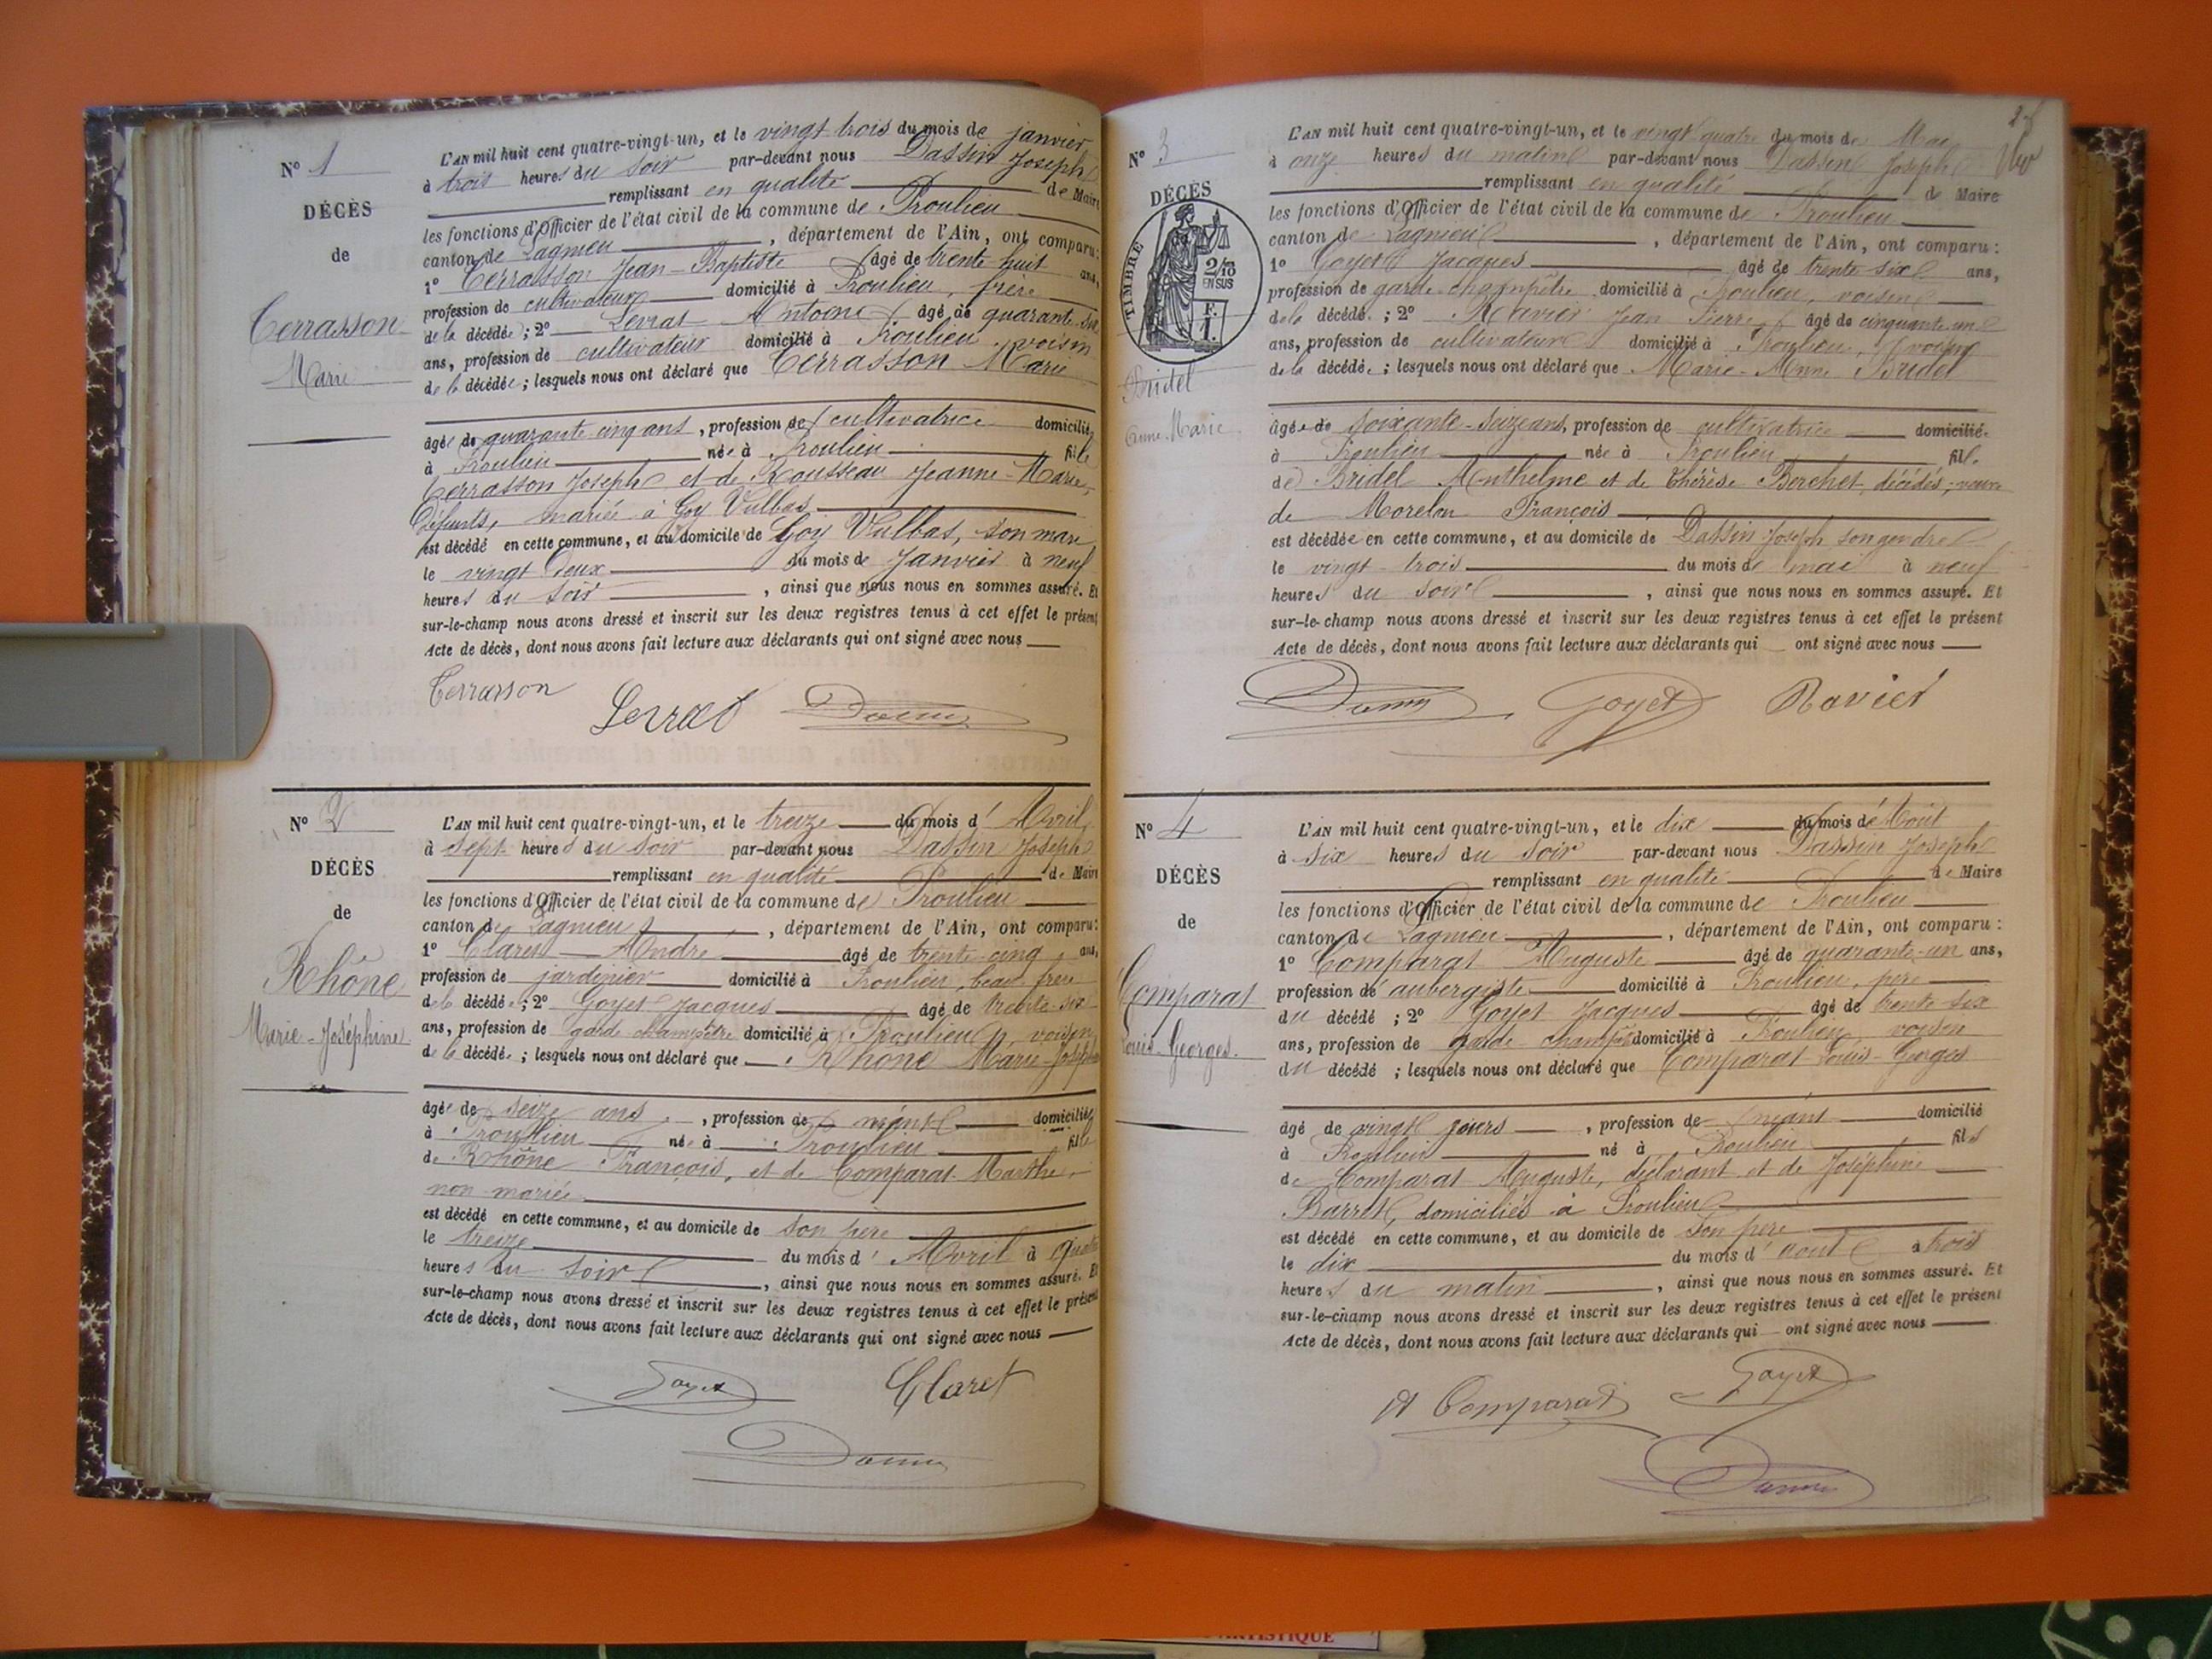 N° 1
DÉCÈS
de
Terrasson
Marie
L'AN mil huit cent quatre-vingt-un, et le vingt trois du mois de janvier
à trois heures du soir par-devant nous Dassin Joseph
remplissant en qualité de Maire
les fonctions d'Officier de l'état civil de la commune de Proulieu
canton de Lagnieu, département de l'Ain, ont comparu:
1° Terrasson Jean-Baptiste âgé de trente huit ans,
profession de cultivateur domicilié à Proulieu, frère
de la décédée; 2° Levrat Antoine âgé de quarante six
ans, profession de cultivateur domicilié à Proulieu, voisin
de la décédée; lesquels nous ont déclaré que Terrasson Marie
âgée de quarante cinq ans, profession de cultivatrice domiciliée
à Proulieu née à Proulieu fille
Terrasson Joseph et de Rousseau Jeanne-Marie,
défunts, mariée à Goy Vulbas
est décédé en cette commune, et au domicile de Goy Vulbas, son mari
le vingt deux du mois de Janvier à neuf
heures du soir, ainsi que nous nous en sommes assuré. Et
sur-le-champ nous avons dressé et inscrit sur les deux registres tenus à cet effet le présent
Acte de décès, dont nous avons fait lecture aux déclarants qui ont signé avec nous
Terrasson
Levrat Dassin
N° 2
DÉCÈS
de
Rhône
Marie-Joséphine
L'AN mil huit cent quatre-vingt-un, et le treize du mois d'Avril
à sept heures du soir par-devant nous Dassin Joseph
remplissant en qualité de Maire
les fonctions d'Officier de l'état civil de la commune de Proulieu
canton de Lagnieu, département de l'Ain, ont comparu:
1° Claret André âgé de trente-cinq ans,
profession de jardinier domicilié à Proulieu, beau frère
de la décédée; 2° Goyet Jacques âgé de trente-six
ans, profession de garde champêtre domicilié à Proulieu, voisin
de la décédée; lesquels nous ont déclaré que Rhône Marie-Joséphine
âgée de seize ans, profession de néant domiciliée
à Proulieu née à Proulieu fille
de Rhône François, et de Comparat Marthe,
non mariée
est décédé en cette commune, et au domicile de son père
le treize du mois d'Avril à quatre
heures du soir, ainsi que nous nous en sommes assuré. Et
sur-le-champ nous avons dressé et inscrit sur les deux registres tenus à cet effet le présent
Acte de décès, dont nous avons fait lecture aux déclarants qui ont signé avec nous
Goyet Claret
Dassin
N° 3
DÉCÈS
TIMBRE
2/10
EN SUS
F.
1.
Bridel
Anne-Marie
L'AN mil huit cent quatre-vingt-un, et le vingt quatre du mois de Mai
à onze heures du matin par-devant nous Dassin Joseph
remplissant en qualité de Maire
les fonctions d'Officier de l'état civil de la commune de Proulieu
canton de Lagnieu, département de l'Ain, ont comparu:
1° Goyet Jacques âgé de trente six ans,
profession de garde-champêtre domicilié à Proulieu, voisin
de la décédée; 2° Ravier Jean Pierre âgé de cinquante un
ans, profession de cultivateur domicilié à Proulieu, voisin
de la décédée; lesquels nous ont déclaré que Marie-Anne Bridel
âgée de soixante-seize ans, profession de cultivatrice domiciliée
à Proulieu née à Proulieu fille
de Bridel Anthelme et de Thérèse Berchet, décédés, veuve
de Morelon François
est décédée en cette commune, et au domicile de Dassin Joseph son gendre
le vingt-trois du mois de mai à neuf
heures du soir, ainsi que nous nous en sommes assuré. Et
sur-le-champ nous avons dressé et inscrit sur les deux registres tenus à cet effet le présent
Acte de décès, dont nous avons fait lecture aux déclarants qui ont signé avec nous
Dassin Goyet Ravier
N° 4
DÉCÈS
de
Comparat
Louis-Georges
L'AN mil huit cent quatre-vingt-un, et le dix du mois d'Août
à six heures du soir par-devant nous Dassin Joseph
remplissant en qualité de Maire
les fonctions d'Officier de l'état civil de la commune de Proulieu
canton de Lagnieu, département de l'Ain, ont comparu:
1° Comparat Auguste âgé de quarante-un ans,
profession de aubergiste domicilié à Proulieu, père
du décédé; 2° Goyet Jacques âgé de trente-six
ans, profession de garde-champêtre domicilié à Proulieu voisin
du décédé; lesquels nous ont déclaré que Comparat Louis-Georges
âgé de vingt jours, profession de néant domicilié
à Proulieu né à Proulieu fils
de Comparat Auguste, déclarant et de Joséphine
Barret, domiciliés à Proulieu
est décédé en cette commune, et au domicile de son père
le dix du mois d'août à trois
heures du matin, ainsi que nous nous en sommes assuré. Et
sur-le-champ nous avons dressé et inscrit sur les deux registres tenus à cet effet le présent
Acte de décès, dont nous avons fait lecture aux déclarants qui ont signé avec nous
A Comparat Goyet
Dassin
ARTISTIQUE